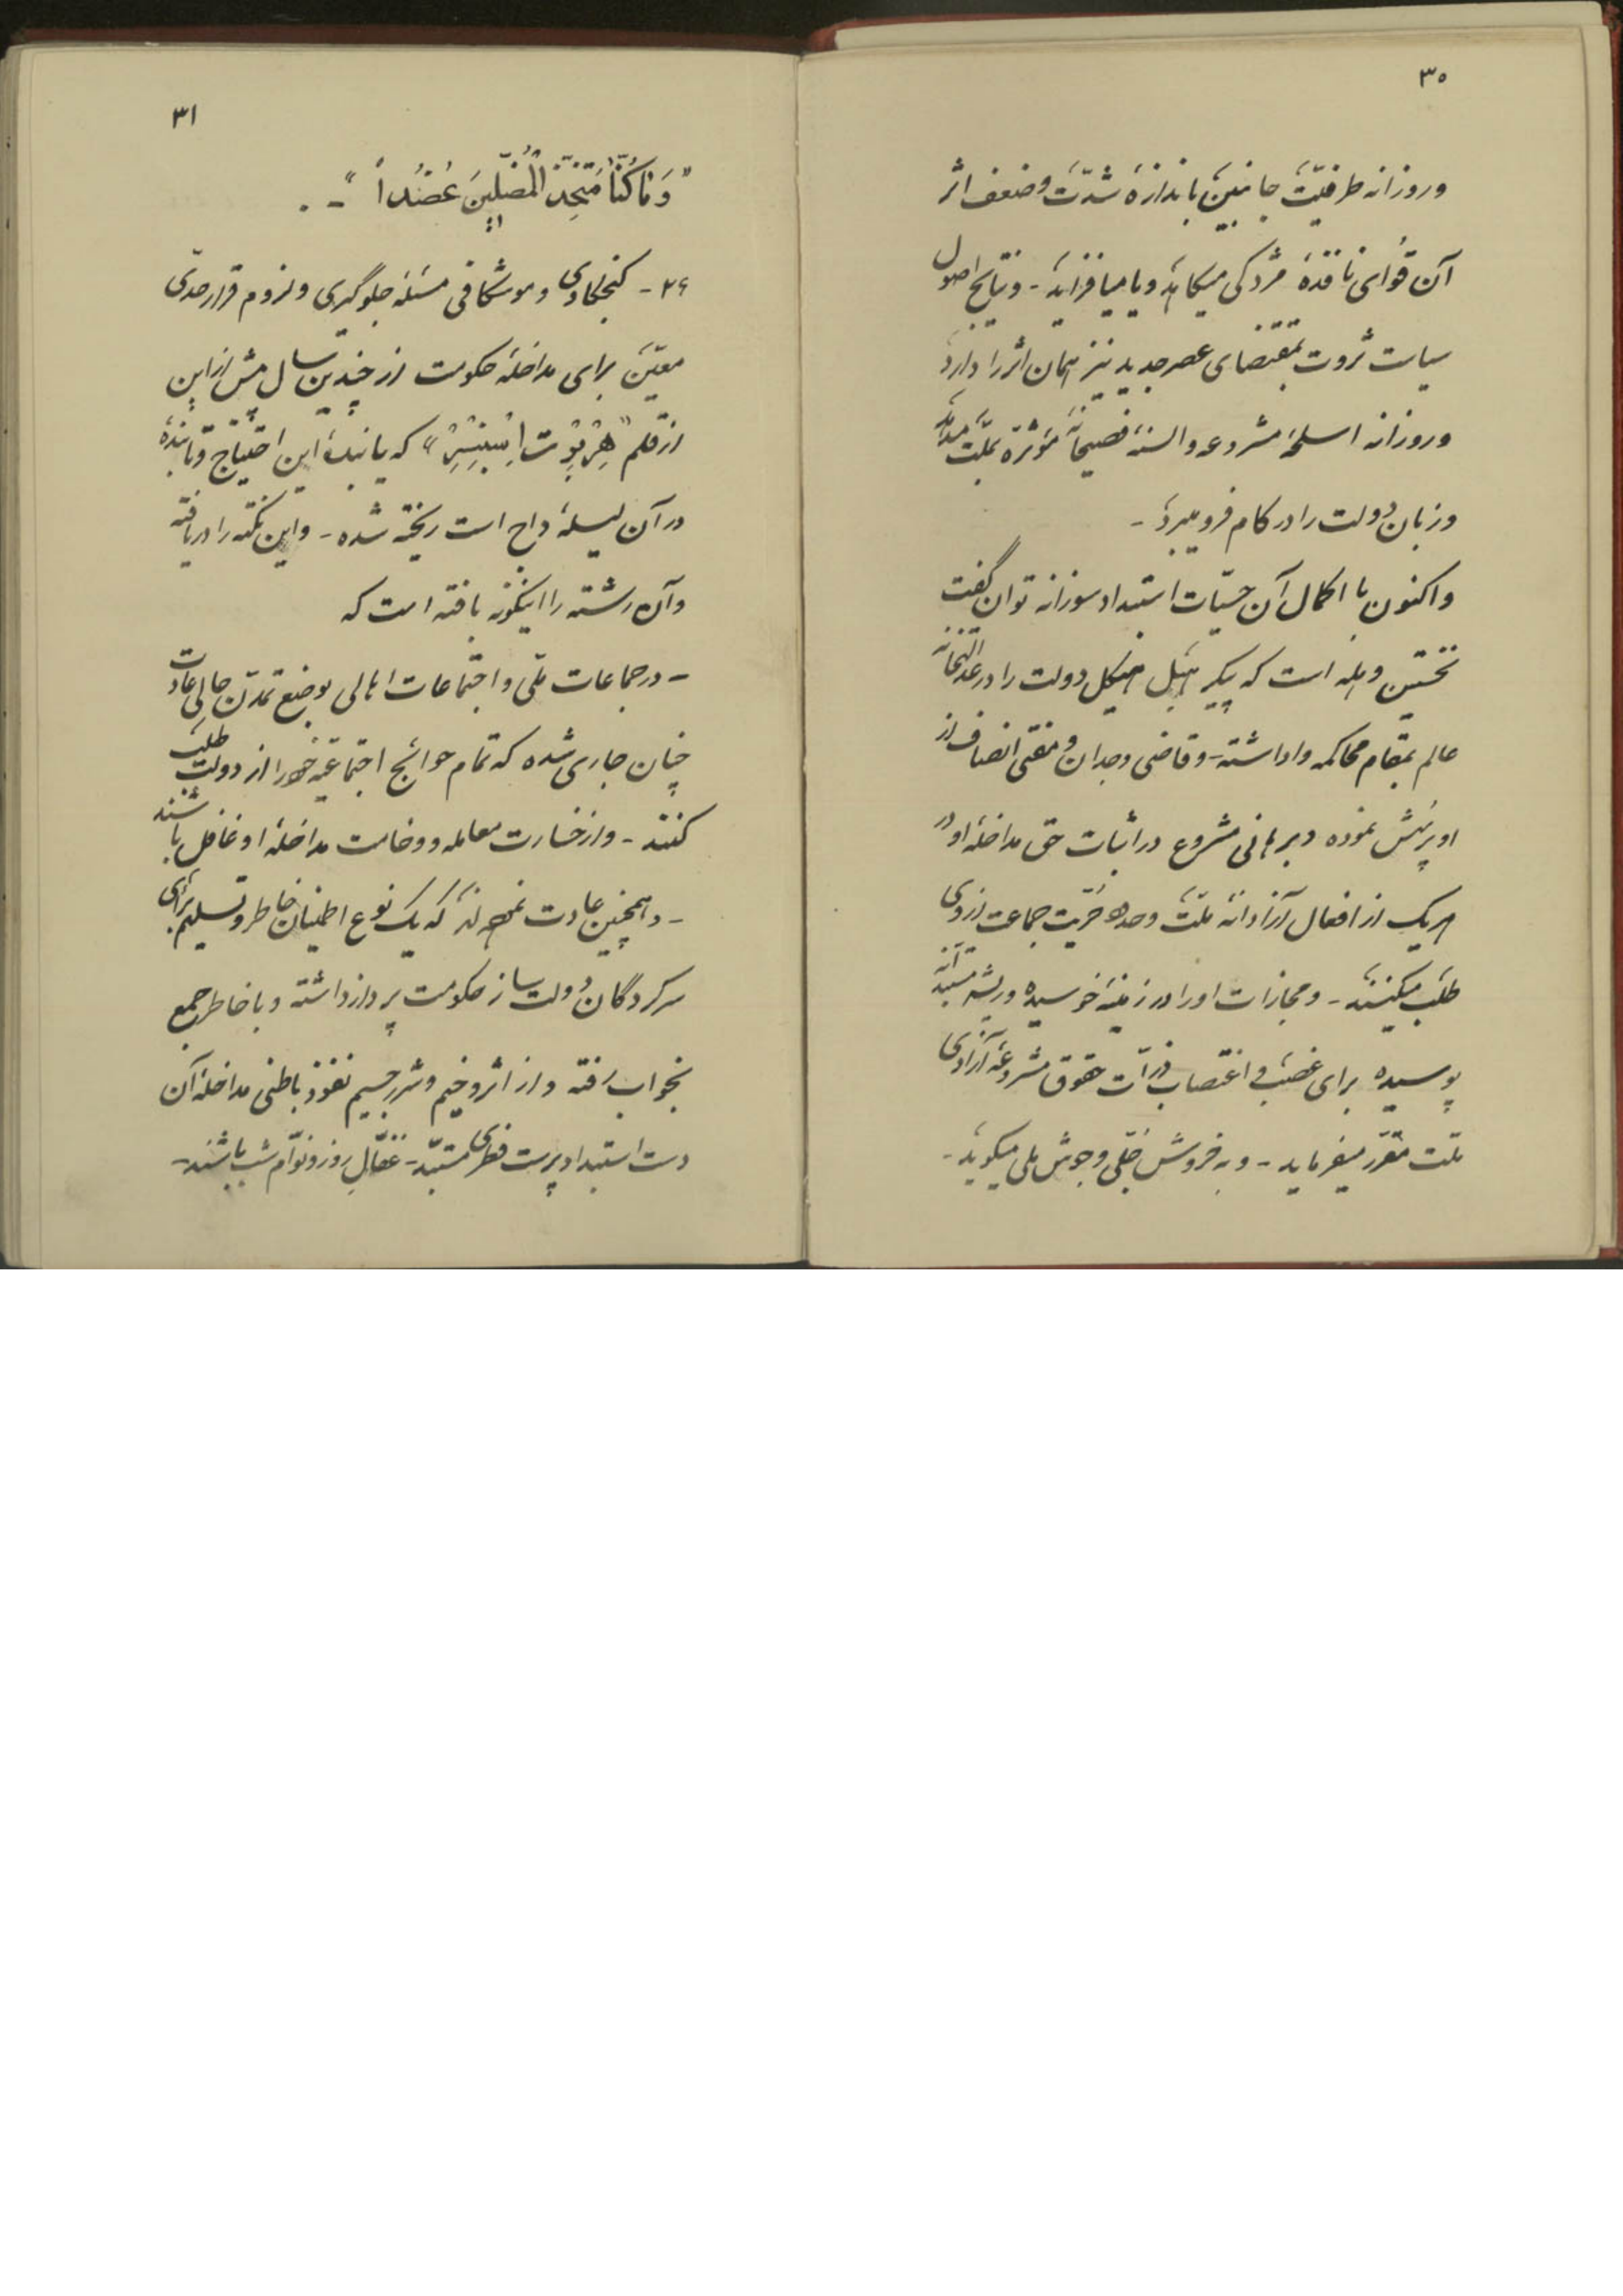 ۳۰
وروزانه طرفیّت جانبین باندازهٔ شدّت وضعف اثر
آن قوای ناقدهٔ مزدکی میکاهد ویا میافزاید - ونتایج اصول
سیاست ثروت بمقتضای عصر جدید نیز همان اثر را دارد
وروزانه اسلحهٔ مشروعه والسنهٔ فصیحانهٔ مؤثره بملّت میدهد
وزبان دولت را در کام فرو میبرد -
واکنون با اکمال آن حسیّات استبداد سوزانه توان گفت
نخستین وهله است که پیکر هیکل دولت را در عدالتخانهٔ
عالم بمقام محاکمه واداشته - وقاضی وجدان ومفتی انصاف از
او پرسش نموده وبرهانی مشروع در اثبات حق مداخلهٔ او در
هریک از افعال آزادانهٔ ملّت وحدود حرّیت جماعت از وی
طلب میکنند - ومجازات او را در زمینهٔ خوسیده وریشه مستبدانهٔ
پوسیده برای غصب و اغتصاب ذرّات حقوق مشروعهٔ آزادی
ملّت مقرّر میفرماید - وبه خروش خلقی وجوش ملی میگوید -
۳۱
"وَمَا كُنْتُ مُتَّخِذَ الْمُضِلِّينَ عَضُداً" - .
۲۶ - کنجکاوی وموشکافی مسئلهٔ جلوگیری ولزوم قرار حدّی
معیّن برای مداخلهٔ حکومت از چندین سال پیش از این
از قلم "هِرْبِرْت اِسْپِنْسِرْ" که یابندهٔ این احتیاج وتابندهٔ
در آن لیلهٔ داج است ریخته شده - واین نکته را دریافته
وآن رشته را اینگونه بافته است که
- در جماعات ملّی واجتماعات اهالی بوضع تمدّن حالی عادت
چنان جاری شده که تمام حوائج اجتماعیّه خود را از دولت طلب
کنند - واز خسارت معامله ووخامت مداخلهٔ او غافل باشند
- وهمچنین عادت نموده‌اند که یک نوع اطمینان خاطر وتسلیم برای
سرکردگان دولت ساز حکومت پرداز داشته وبا خاطر جمع
بخواب رفته واز اثر وخیم وشرر جسیم نفوذ باطنی مداخلهٔ آن
دست استبداد پرست فطری مستبدّ - غفّالِ روز ونوّام شب باشند -